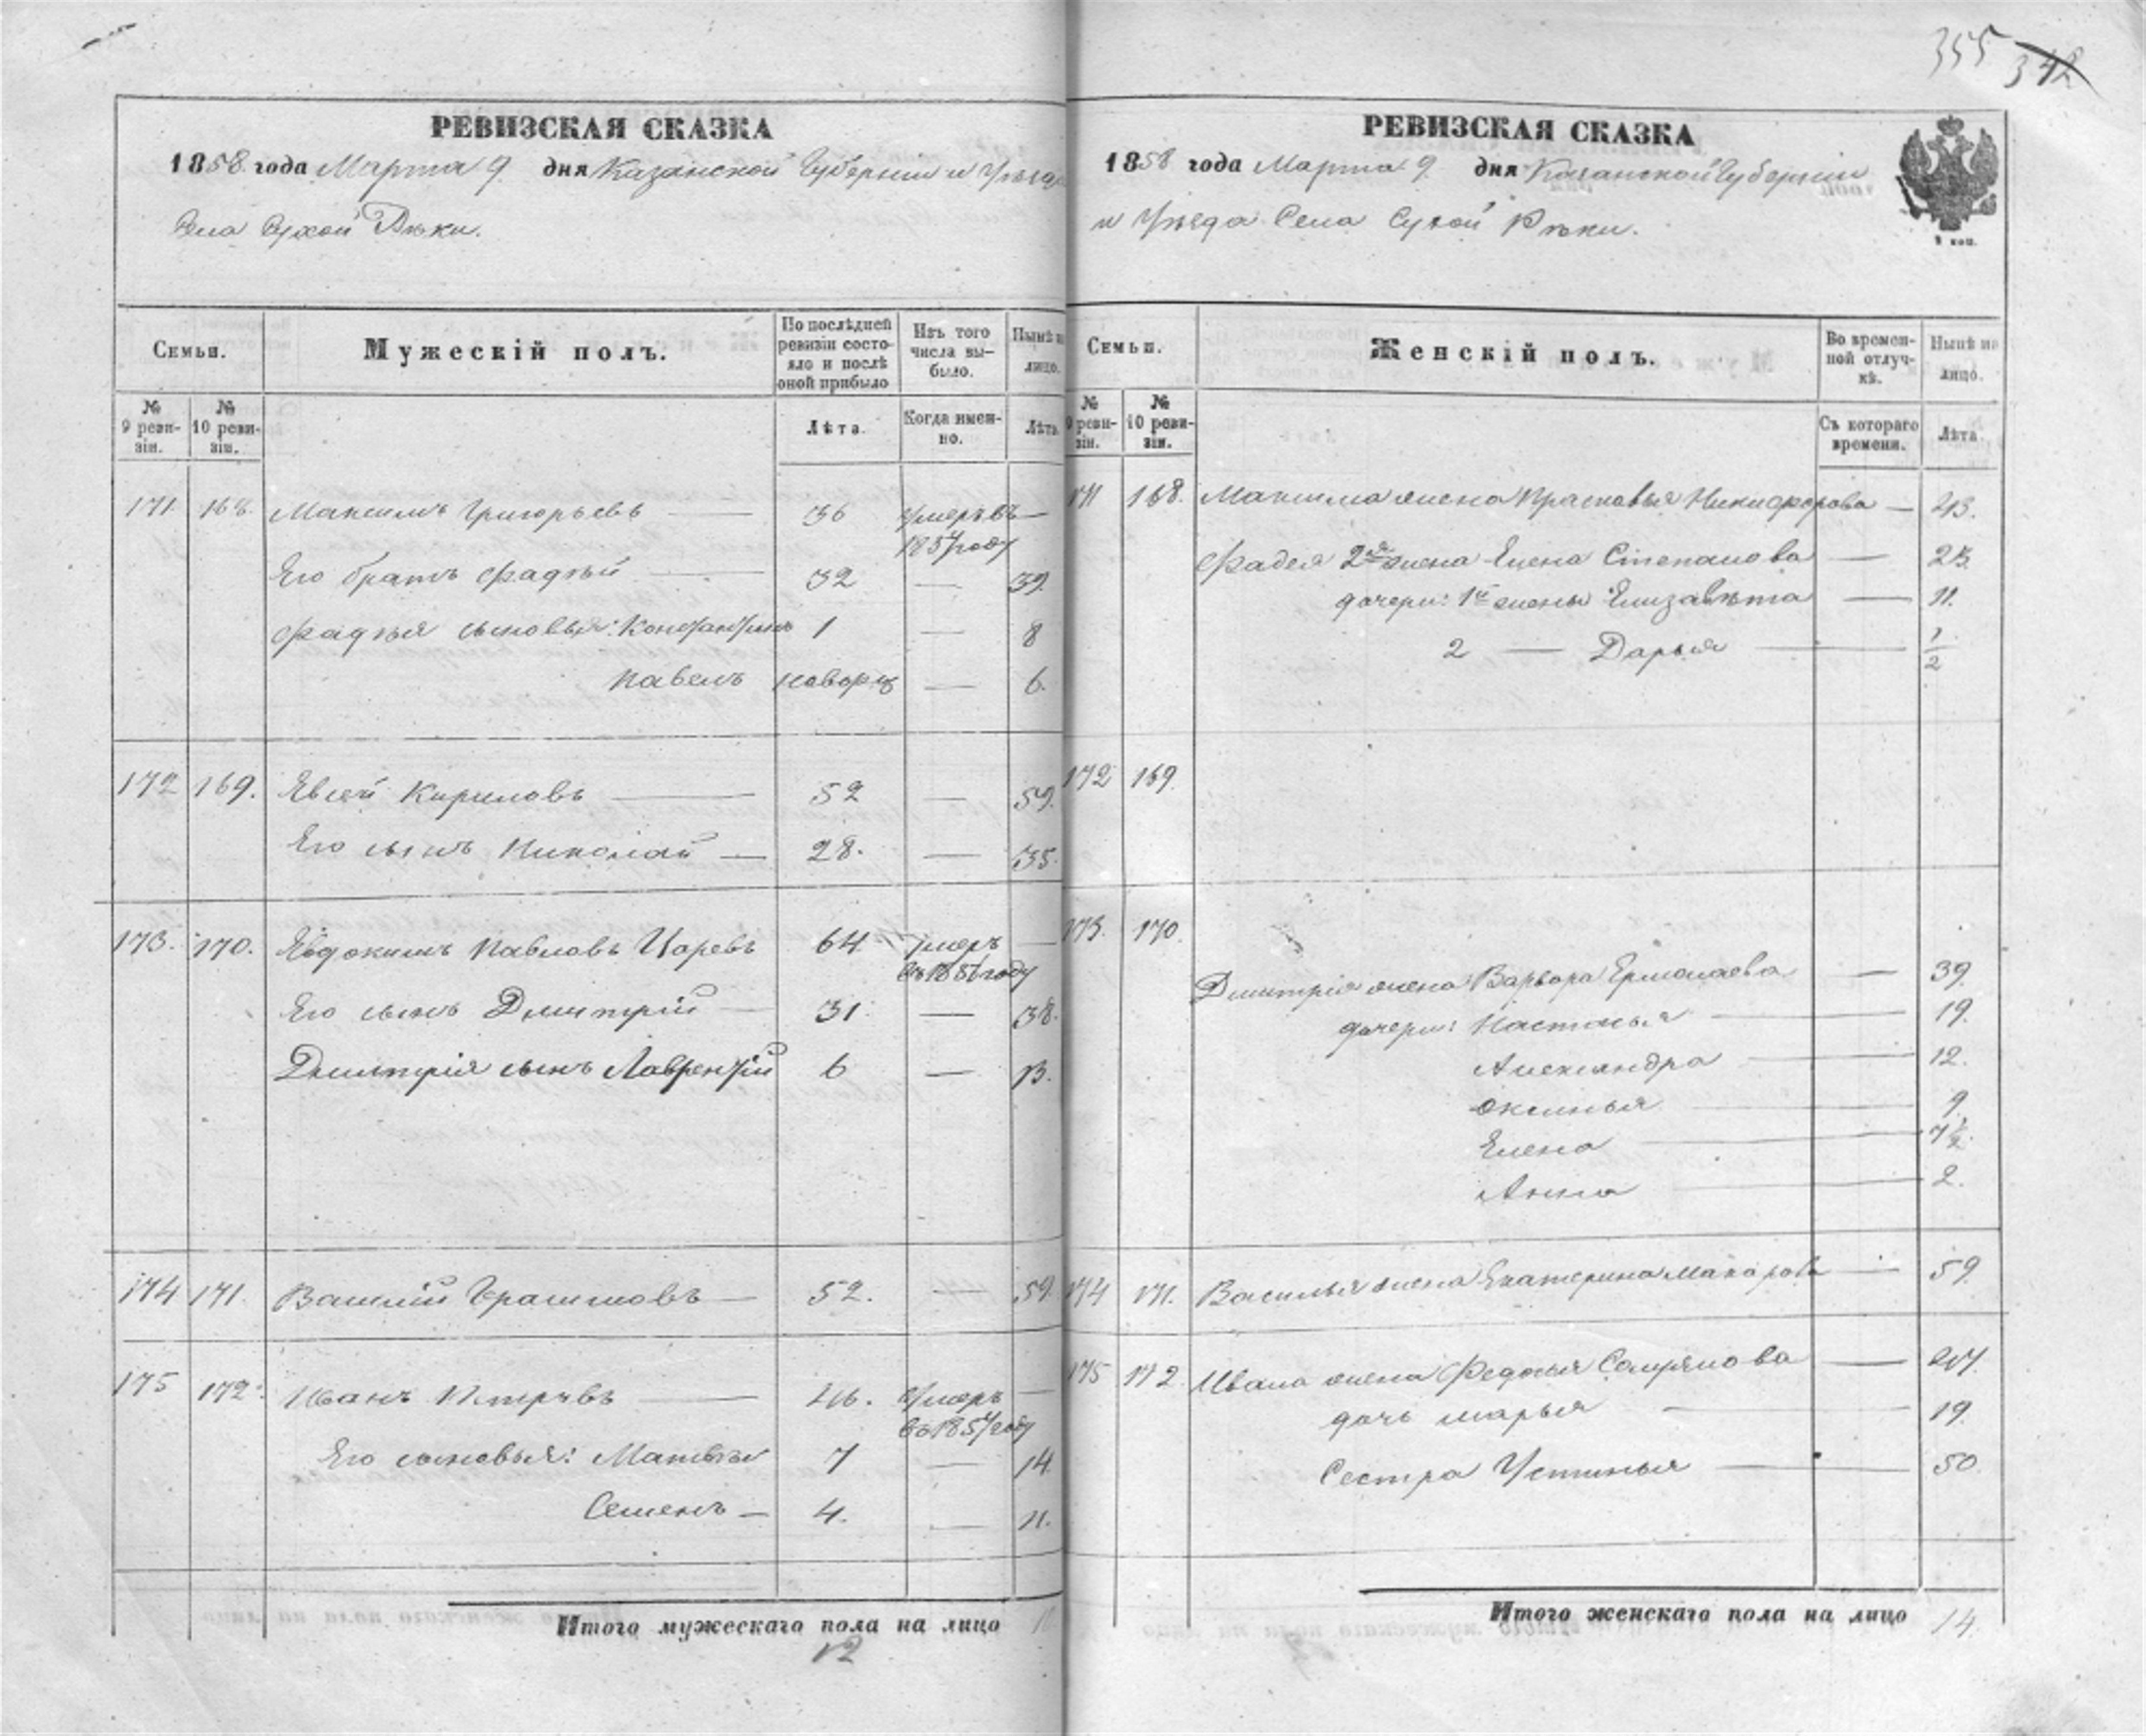 355 342
РЕВИЗСКАЯ СКАЗКА
1858 года Марта 9 дня Казанской Губерніи и Уѣзда
Села Сухой Рѣки.
Семьи.
Мужескій полъ.
По послѣдней ревизіи состояло и послѣ оной прибыло
Изъ того числа выбыло.
Нынѣ на лицо.
№ 9 ревизіи.
№ 10 ревизіи.
Лѣта.
Когда именно.
Лѣта.
171 168. Максимъ Григорьевъ — 36 умеръ въ 1857 году —
Его братъ Фадѣй — 32 — 39.
Фадѣя сыновья: Константинъ 1 — 8
Павелъ новорж — 6.
172 169. Евсей Кириловъ — 52 — 59.
Его сынъ Николай — 28. — 35.
173. 170. Евдокимъ Павловъ Царевъ 64 умеръ въ 1856 году —
Его сынъ Дмитрій — 31. — 38.
Дмитрія сынъ Лаврентій 6 — 13.
174 171. Василій Герасимовъ — 52. — 59.
175 172. Иванъ Петровъ — 46. умеръ въ 1857 году —
Его сыновья: Матвѣй 7 — 14.
Семенъ — 4. — 11.
Итого мужескаго пола на лицо
12
РЕВИЗСКАЯ СКАЗКА
1858 года Марта 9. дня Казанской Губерніи
и Уѣзда Села Сухой Рѣки.
Семьи.
Женскій полъ.
Во временной отлучкѣ.
Нынѣ на лицо.
№ 9 ревизіи.
№ 10 ревизіи.
Съ котораго времени.
Лѣта.
171 168. Максима жена Прасковья Никифорова — 43.
Фадея 2я жена Елена Степанова — 23.
дочери: 1й жены Елизавѣта — 11.
2 — Дарья — 1/2
172 169.
173. 170.
Дмитрія жена Варвора Ермолаева — 39.
дочери: Настасья — 19.
Александра — 12.
Оксинья — 9.
Елена — 7 1/2.
Анна — 2.
174 171. Василья жена Екатерина Макарова — 59.
175 172. Ивана жена Федосья — 47.
дочь Марья — 19.
Сестра Устинья — 50.
Итого женскаго пола на лицо 14.